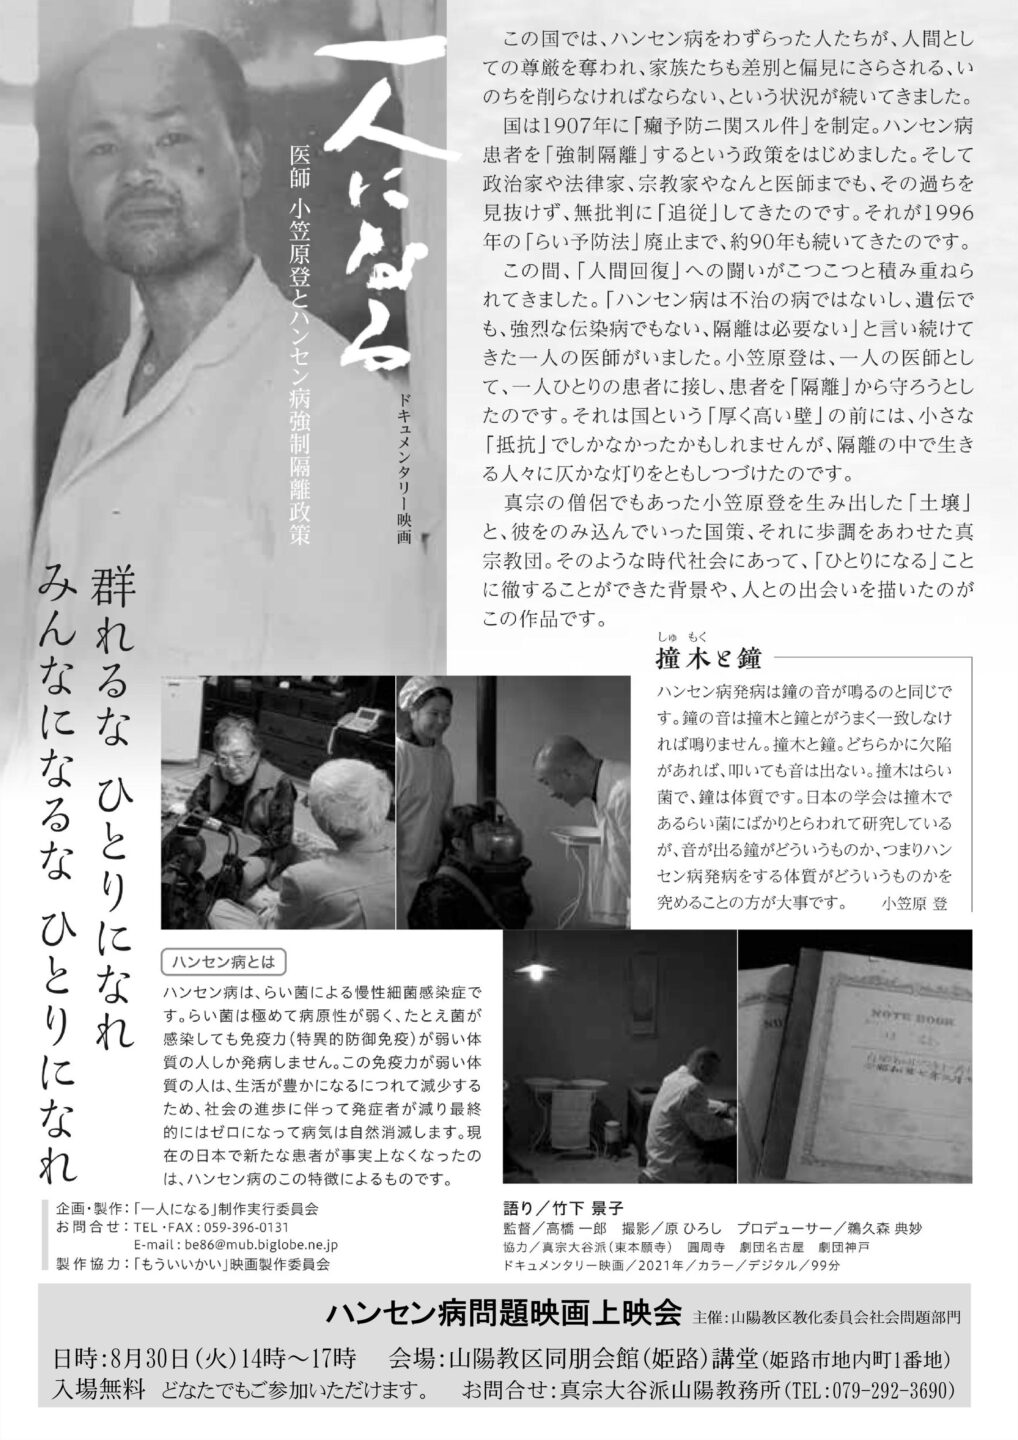 一人になる
医師 小笠原登とハンセン病強制隔離政策
ドキュメンタリー映画
群れるな ひとりになれ
みんなになるな ひとりになれ
この国では、ハンセン病をわずらった人たちが、人間とし
ての尊厳を奪われ、家族たちも差別と偏見にさらされる、い
のちを削らなければならない、という状況が続いてきました。
国は1907年に「癩予防ニ関スル件」を制定。ハンセン病
患者を「強制隔離」するという政策をはじめました。そして
政治家や法律家、宗教家やなんと医師までも、その過ちを
見抜けず、無批判に「追従」してきたのです。それが1996
年の「らい予防法」廃止まで、約90年も続いてきたのです。
この間、「人間回復」への闘いがこつこつと積み重ねら
れてきました。「ハンセン病は不治の病ではないし、遺伝で
も、強烈な伝染病でもない、隔離は必要ない」と言い続けて
きた一人の医師がいました。小笠原登は、一人の医師とし
て、一人ひとりの患者に接し、患者を「隔離」から守ろうとし
たのです。それは国という「厚く高い壁」の前には、小さな
「抵抗」でしかなかったかもしれませんが、隔離の中で生き
る人々に仄かな灯りをともしつづけたのです。
真宗の僧侶でもあった小笠原登を生み出した「土壌」
と、彼をのみ込んでいった国策、それに歩調をあわせた真
宗教団。そのような時代社会にあって、「ひとりになる」こと
に徹することができた背景や、人との出会いを描いたのが
この作品です。
しゅ もく
撞木と鐘
ハンセン病発病は鐘の音が鳴るのと同じで
す。鐘の音は撞木と鐘とがうまく一致しなけ
れば鳴りません。撞木と鐘。どちらかに欠陥
があれば、叩いても音は出ない。撞木はらい
菌で、鐘は体質です。日本の学会は撞木で
あるらい菌にばかりとらわれて研究している
が、音が出る鐘がどういうものか、つまりハン
セン病発病をする体質がどういうものかを
究めることの方が大事です。 小笠原 登
ハンセン病とは
ハンセン病は、らい菌による慢性細菌感染症で
す。らい菌は極めて病原性が弱く、たとえ菌が
感染しても免疫力（特異的防御免疫）が弱い体
質の人しか発病しません。この免疫力が弱い体
質の人は、生活が豊かになるにつれて減少する
ため、社会の進歩に伴って発症者が減り最終
的にはゼロになって病気は自然消滅します。現
在の日本で新たな患者が事実上なくなったの
は、ハンセン病のこの特徴によるものです。
NOTE BOOK
企画・製作：「一人になる」制作実行委員会
お問合せ：TEL・FAX：059-396-0131
E-mail：be86@mub.biglobe.ne.jp
製作協力：「もういいかい」映画製作委員会
語り／竹下 景子
監督／高橋 一郎 撮影／原 ひろし プロデューサー／鵜久森 典妙
協力／真宗大谷派（東本願寺） 圓周寺 劇団名古屋 劇団神戸
ドキュメンタリー映画／2021年／カラー／デジタル／99分
ハンセン病問題映画上映会 主催：山陽教区教化委員会社会問題部門
日時：8月30日（火）14時～17時 会場：山陽教区同朋会館（姫路）講堂（姫路市地内町1番地）
入場無料 どなたでもご参加いただけます。 お問合せ：真宗大谷派山陽教務所（TEL：079-292-3690）